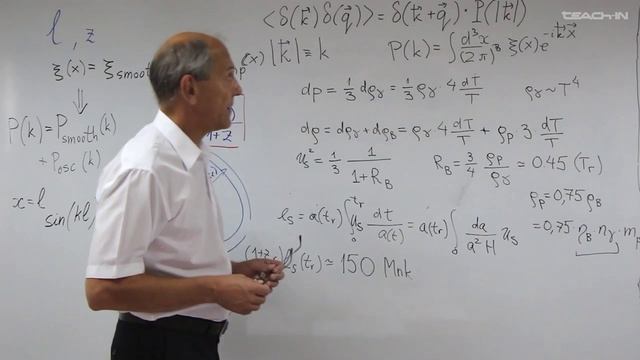 TEACH-IN
l, z
ξ(x) = ξ_smooth (x)
⇓
P(k) = P_smooth(k)
+ P_osc(k)
x = l
sin(kl
1+z
<δ(k⃗) δ(q⃗)> = δ(k⃗+q⃗) · P(|k⃗|)
|k⃗| ≡ k
P(k) = ∫ d³x/(2π)³ ξ(x) e^{-ik⃗x⃗}
dp = 1/3 dρ_γ = 1/3 ρ_γ · 4 dT/T
ρ_γ ~ T⁴
dρ = dρ_γ + dρ_B = ρ_γ · 4 dT/T + ρ_p · 3 dT/T
u_s² = 1/3 1/(1+R_B)
R_B = 3/4 ρ_p/ρ_γ ≃ 0.45 (T_r)
ρ_p = 0,75 ρ_B
l_s = a(t_r) ∫₀^{t_r} u_s dt/a(t) = a(t_r) ∫₀ da/(a² H) u_s
= 0,75 η_B n_γ · m_p
(1+z_r) l_s(t_r) ≃ 150 Мпк